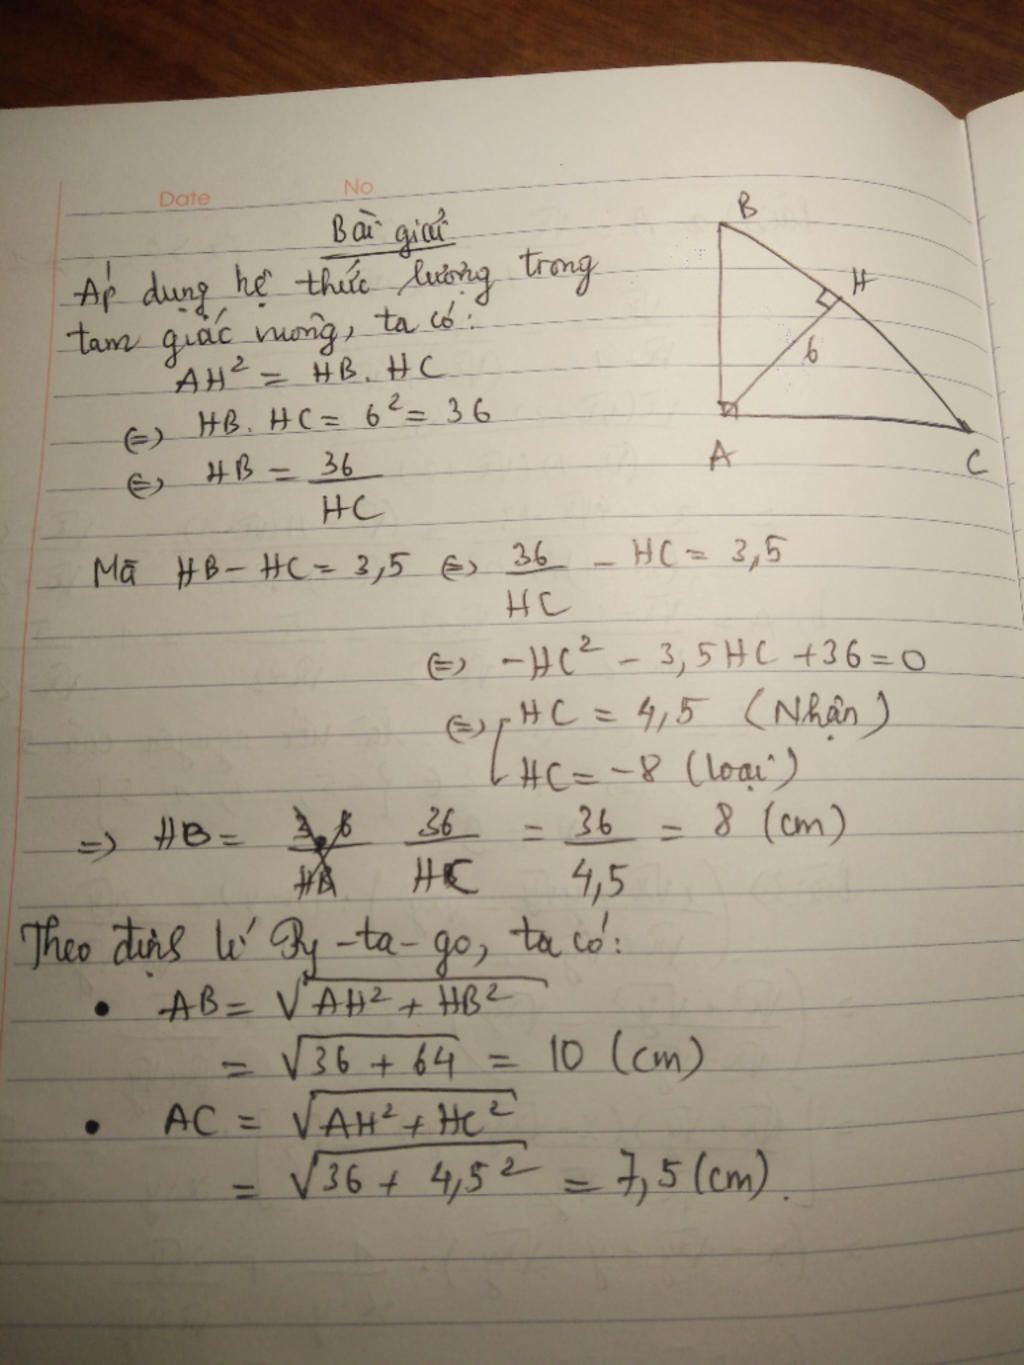 Date No
Bài giải
Áp dụng hệ thức lượng trong
tam giác vuông, ta có:
AH² = HB. HC
(=) HB. HC = 6² = 36
(=) HB = 36/HC
Mà HB - HC = 3,5 (=) 36/HC - HC = 3,5
(=) -HC² - 3,5HC + 36 = 0
(=) [ HC = 4,5 (Nhận)
HC = -8 (loại)
=) HB = 36/HC = 36/4,5 = 8 (cm)
Theo định lí Py-ta-go, ta có:
• AB = √AH² + HB²
= √36 + 64 = 10 (cm)
• AC = √AH² + HC²
= √36 + 4,5² = 7,5 (cm).
B
H
6
A
C